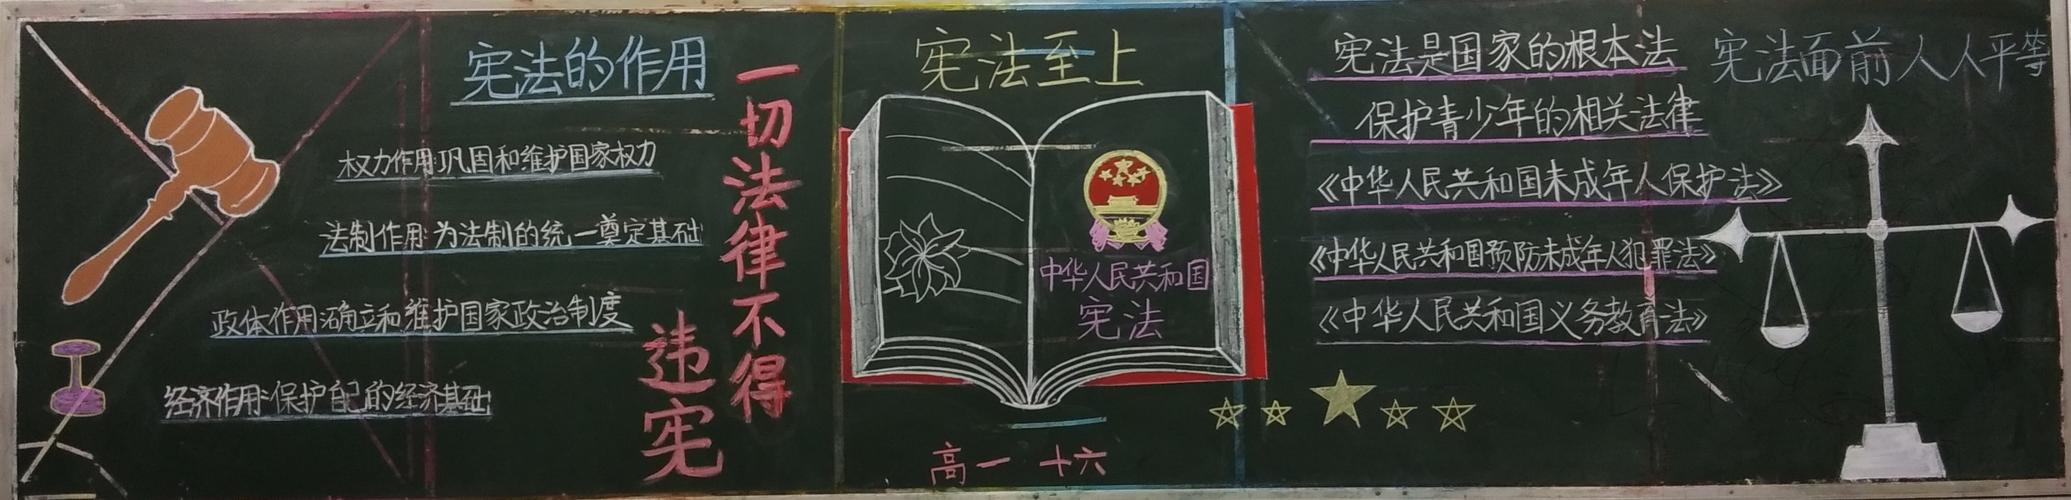 宪法的作用
权力作用:巩固和维护国家权力
法制作用:为法制的统一奠定基础
政体作用:确立和维护国家政治制度
经济作用:保护自己的经济基础
一切法律不得
违宪
宪法至上
中华人民共和国
宪法
高一 十六
宪法是国家的根本法
保护青少年的相关法律
《中华人民共和国未成年人保护法》
《中华人民共和国预防未成年人犯罪法》
《中华人民共和国义务教育法》
宪法面前人人平等